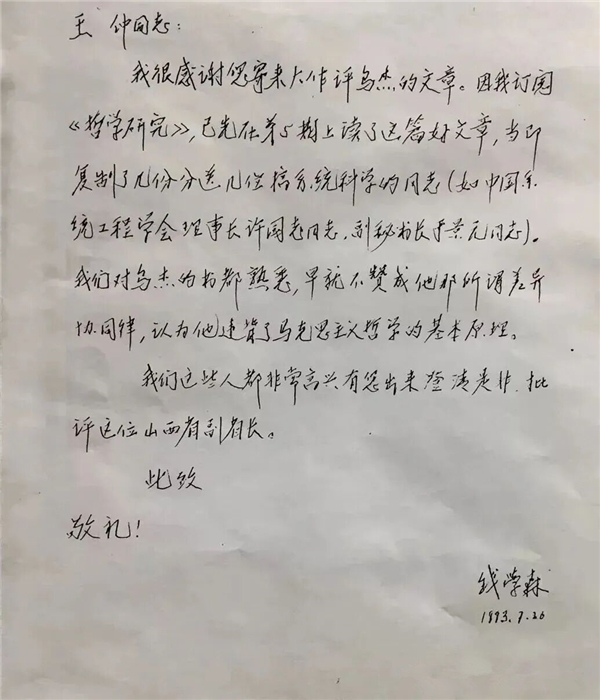 王 仲同志:
我很感谢您寄来大作评乌杰的文章。因我订阅
《哲学研究》,已先在第5期上读了这篇好文章,当即
复制了几份分送几位搞系统科学的同志(如中国系
统工程学会理事长许国志同志,副秘书长于景元同志)。
我们对乌杰的书都熟悉,早就不赞成他那所谓差异
协同律,认为他违背了马克思主义哲学的基本原理。
我们这些人都非常高兴有您出来澄清是非,批
评这位山西省副省长。
此致
敬礼!
钱学森
1993.7.26